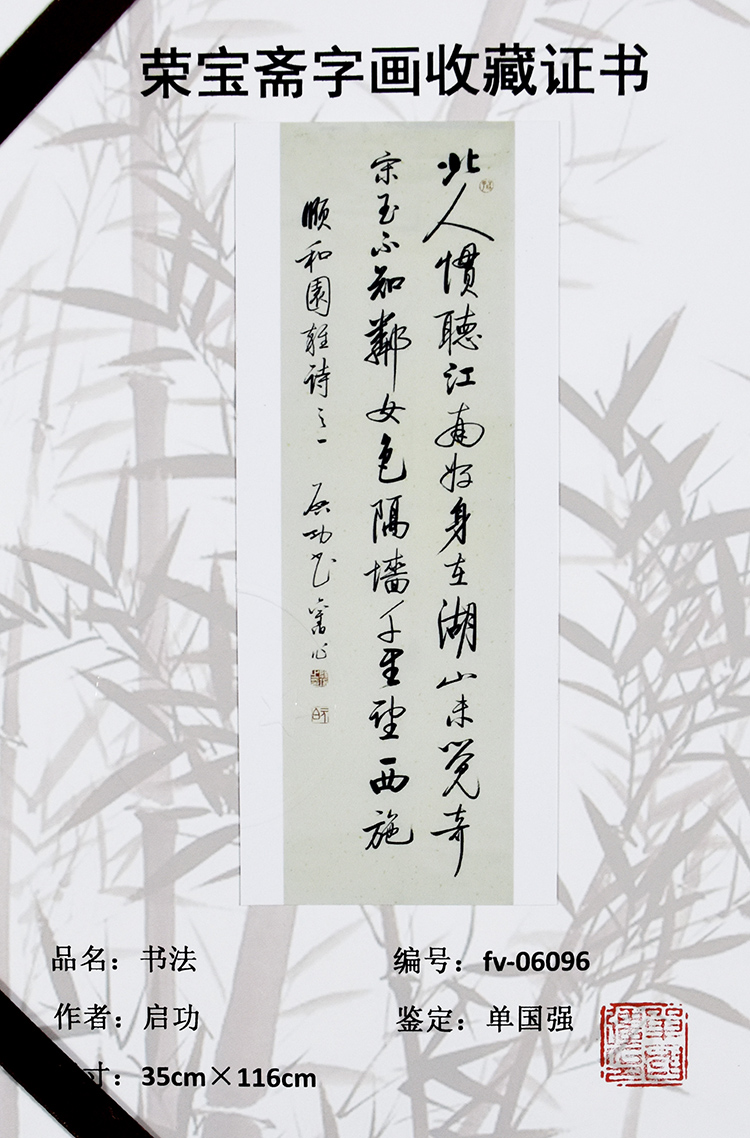 荣宝斋字画收藏证书
北人慣聽江南好身在湖山未覺奇
宋玉不知鄰女色隔墻千里望西施
頤和園雜詩之一 启功书舊作
品名：书法
编号：fv-06096
作者：启功
鉴定：单国强
寸：35cm×116cm